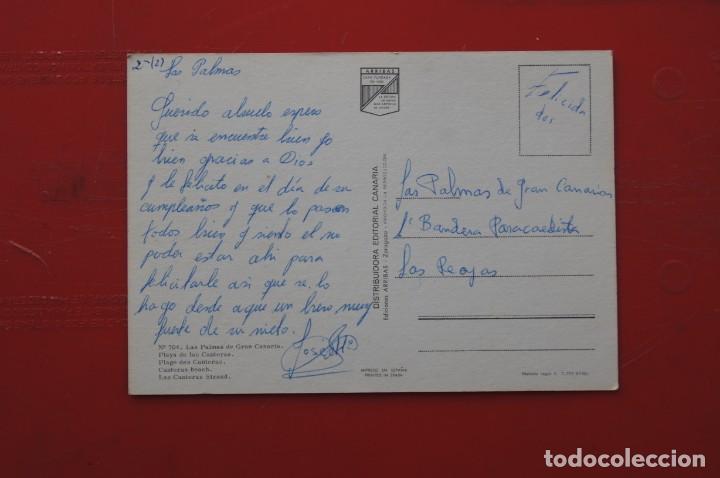 2-(2) Las Palmas
Querido abuelo espero
que se encuentre bien yo
bien gracias a Dios
y le felicito en el día de su
cumpleaños y que lo pasen
todos bien y siento el no
poder estar ahí para
felicitarle así que se lo
hago desde aquí un beso muy
fuerte de su nieto.
Nº 704. Las Palmas de Gran Canaria.
Playa de las Canteras.
Plage des Canteras.
Canteras beach.
Las Canteras Strand.
ARRIBAS
CASA FUNDADA
DISTRIBUIDORA EDITORIAL CANARIA
Ediciones ARRIBAS - Zaragoza - PROHIBIDA LA REPRODUCCION
IMPRESO EN ESPAÑA
PRINTED IN SPAIN
Felicida
des
Las Palmas de Gran Canaria
1ª Bandera Paracaidista
Las Rejas
Depósito legal
todocoleccion
todocoleccion.net